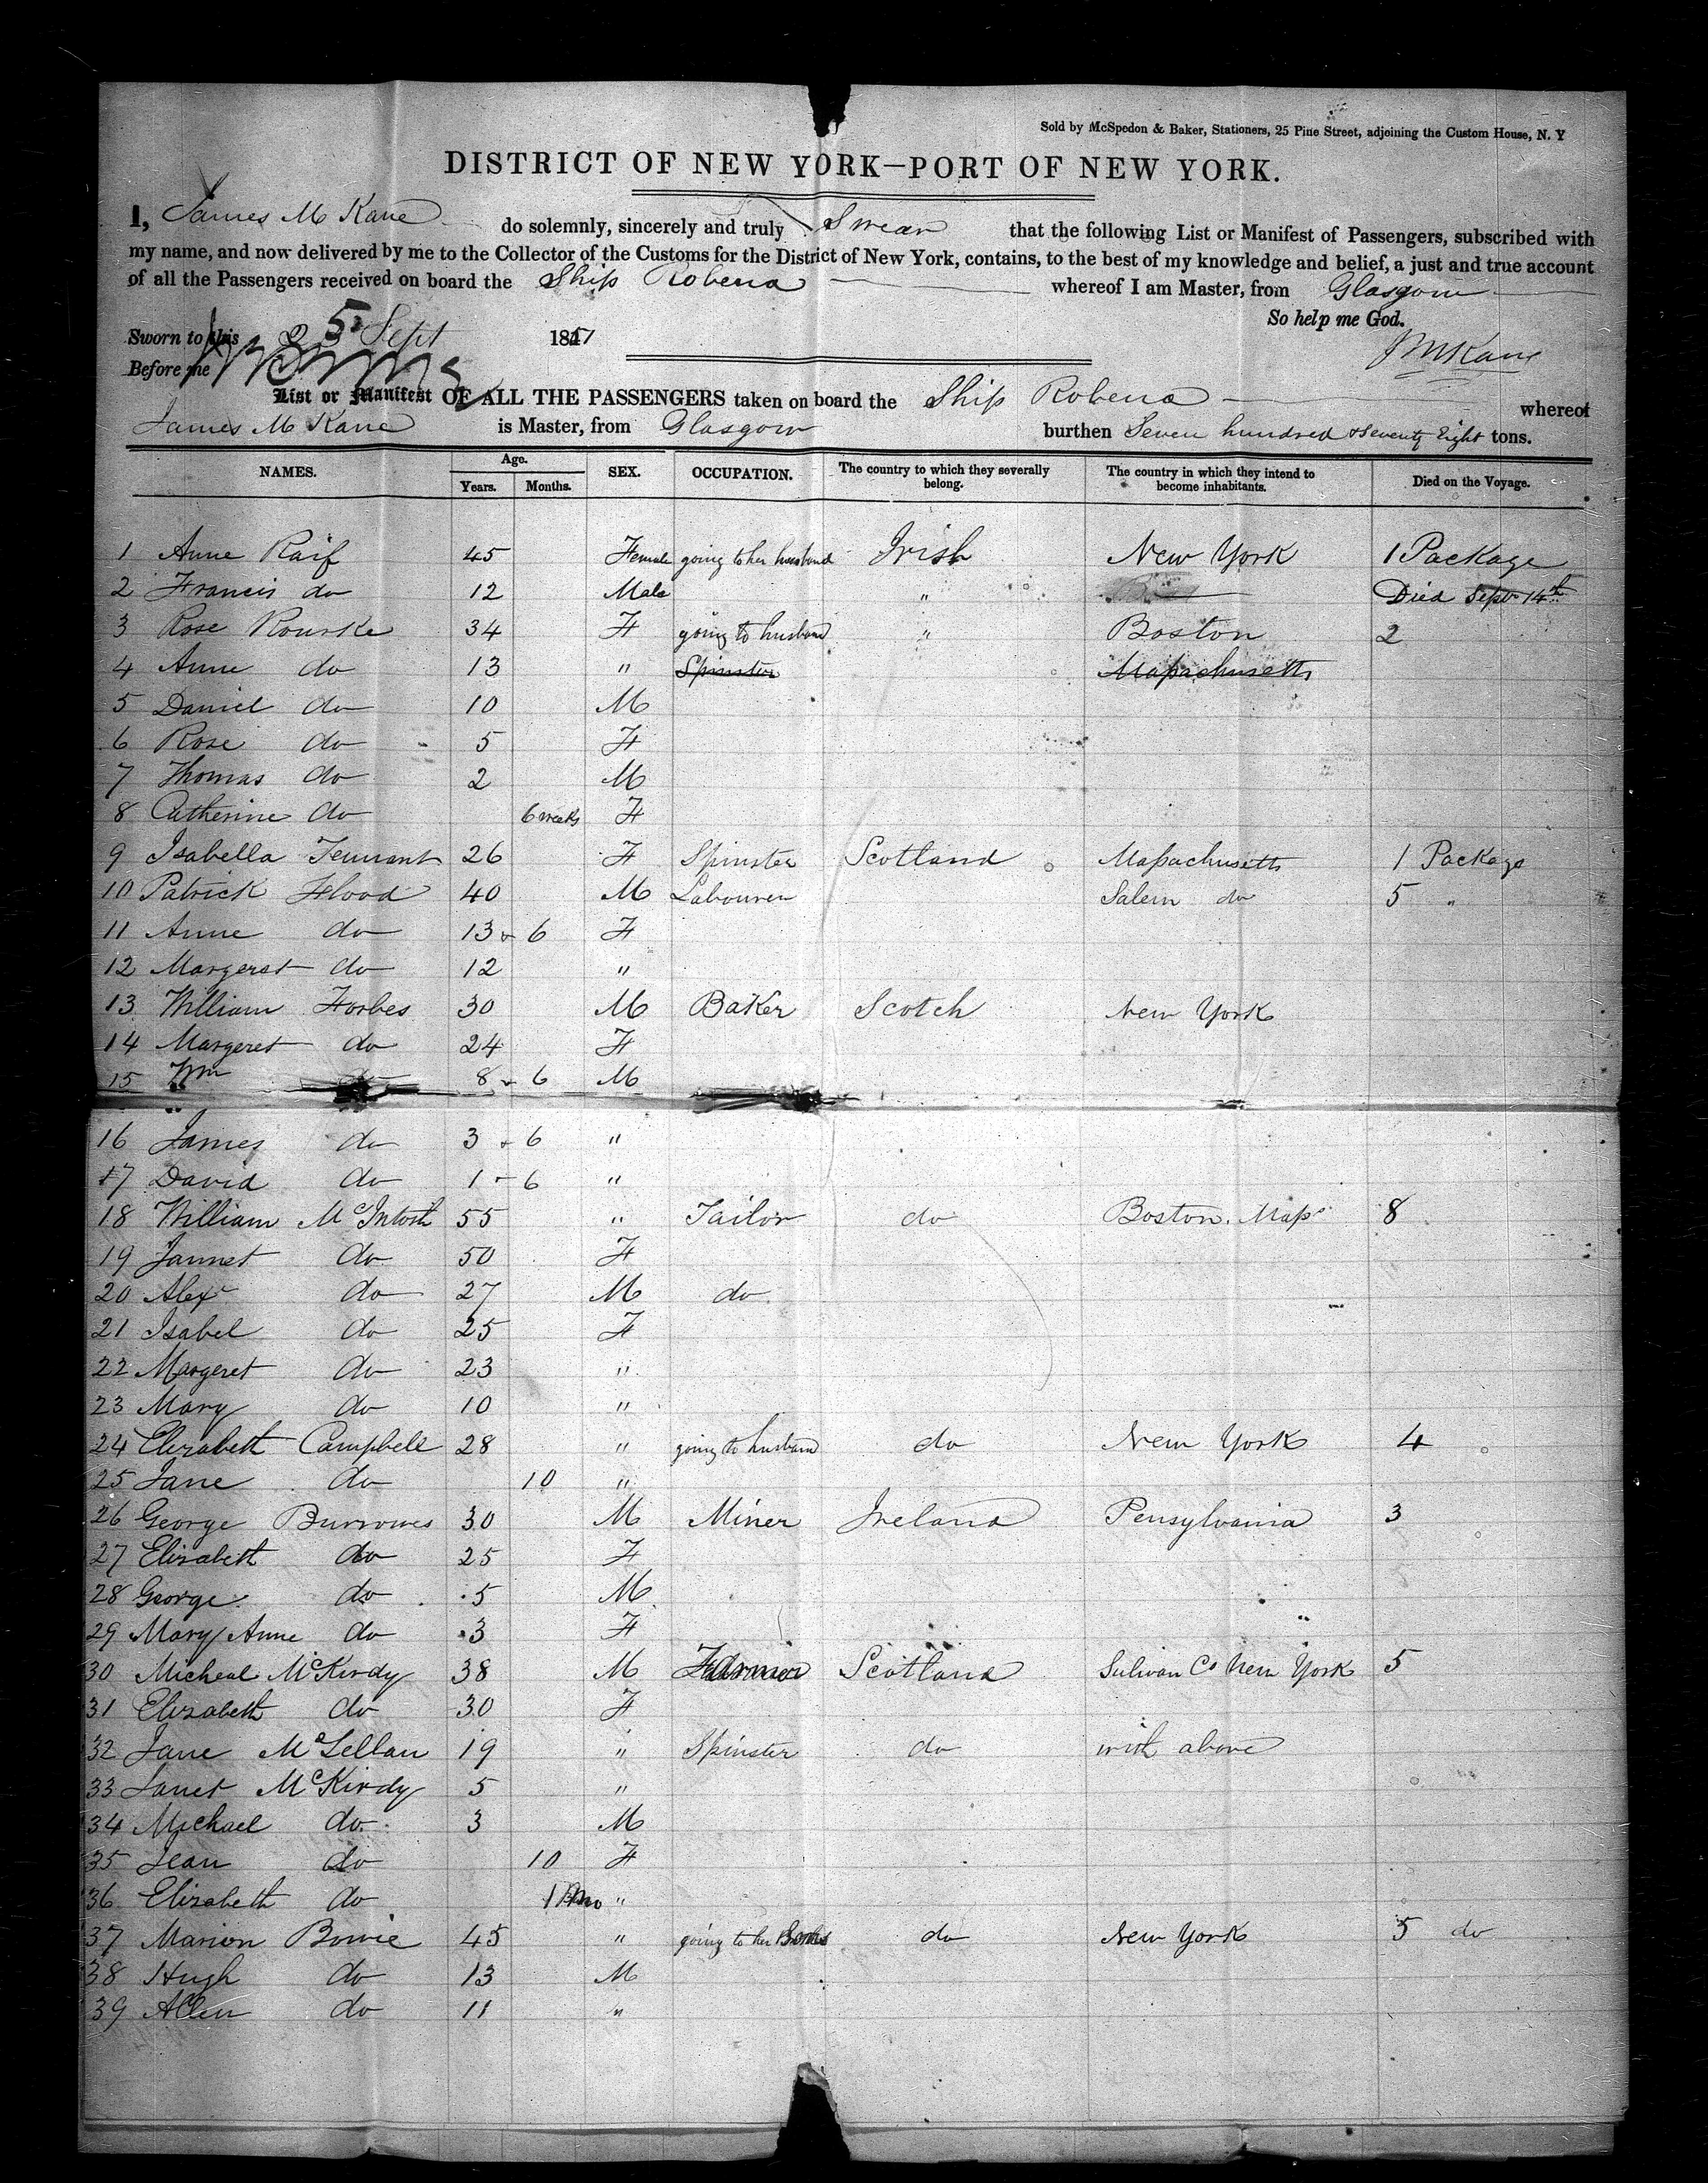 Sold by McSpedon & Baker, Stationers, 25 Pine Street, adjoining the Custom House, N. Y
DISTRICT OF NEW YORK—PORT OF NEW YORK.
I, James M Kane do solemnly, sincerely and truly Swear that the following List or Manifest of Passengers, subscribed with
my name, and now delivered by me to the Collector of the Customs for the District of New York, contains, to the best of my knowledge and belief, a just and true account
of all the Passengers received on board the Ship Robena whereof I am Master, from Glasgow
So help me God.
Sworn to this 25 Sept 1847
J M Kane
Before me
List or Manifest OF ALL THE PASSENGERS taken on board the Ship Robena whereof
James M Kane is Master, from Glasgow burthen Seven hundred & Seventy Eight tons.
NAMES. Age. Years. Months. SEX. OCCUPATION. The country to which they severally belong. The country in which they intend to become inhabitants. Died on the Voyage.
1 Anne Raif 45 Female going to her husband Irish New York 1 Package
2 Francis do 12 Male " Died Sept 14th
3 Rose Rourke 34 F going to husband " Boston 2
4 Anne do 13 " Spinster Massachusetts
5 Daniel do 10 M
6 Rose do 5 F
7 Thomas do 2 M
8 Catherine do 6 weeks F
9 Isabella Tennant 26 F Spinster Scotland Massachusetts 1 Package
10 Patrick Flood 40 M Labourer Salem do 5 "
11 Anne do 13 & 6 F
12 Margeret do 12 "
13 William Forbes 30 M Baker Scotch New York
14 Margeret do 24 F
15 Wm do 8 & 6 M
16 James do 3 & 6 "
17 David do 1 - 6 "
18 William McIntosh 55 " Tailor do Boston. Mass 8
19 Jannet do 50 F
20 Alexr do 27 M do
21 Isabel do 25 F
22 Margeret do 23 "
23 Mary do 10 "
24 Elizabeth Campbell 28 " going to husband do New York 4
25 Jane do 10 "
26 George Burrowes 30 M Miner Ireland Pensylvania 3
27 Elizabeth do 25 F
28 George do 5 M
29 Mary Anne do 3 F
30 Micheal McKirdy 38 M Farmer Scotland Sulivan Co New York 5
31 Elizabeth do 30 F
32 Jane McLellan 19 " Spinster do with above
33 Janet McKirdy 5 "
34 Michael do 3 M
35 Jean do 10 F
36 Elizabeth do 1 Mo "
37 Marion Bowie 45 " going to her do New York 5 do
38 Hugh do 13 M
39 Allen do 11 "